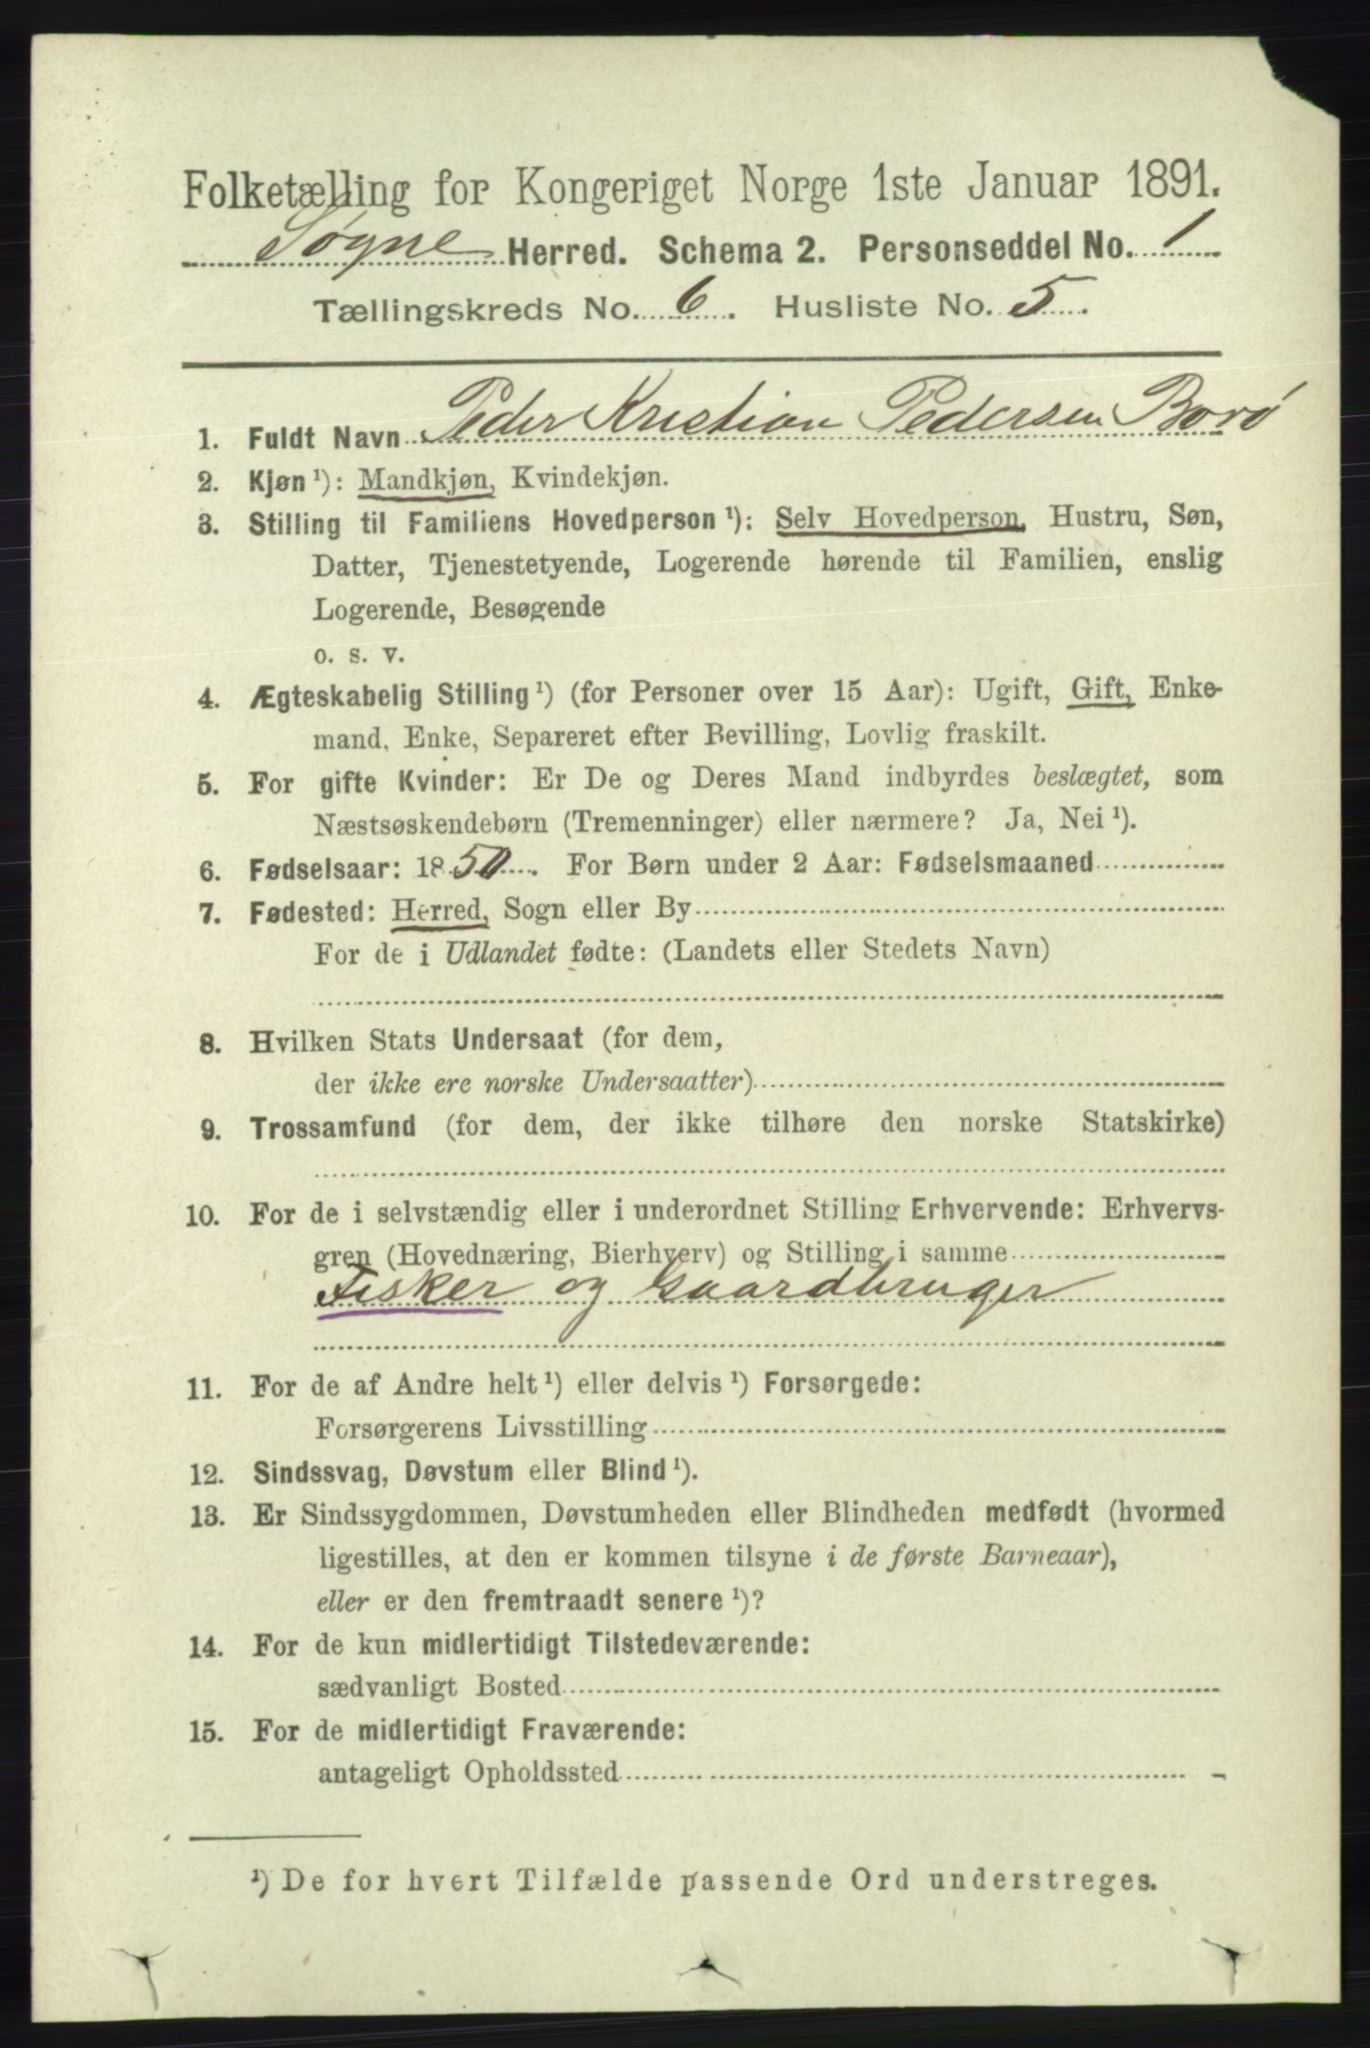 Folketælling for Kongeriget Norge 1ste Januar 1891.
Søgne Herred. Schema 2. Personseddel No. 1
Tællingskreds No. 6. Husliste No. 5.
1. Fuldt Navn Peder Kristian Pedersen Borø
2. Kjøn¹): Mandkjøn, Kvindekjøn.
3. Stilling til Familiens Hovedperson¹): Selv Hovedperson, Hustru, Søn,
Datter, Tjenestetyende, Logerende hørende til Familien, enslig
Logerende, Besøgende
o. s. v.
4. Ægteskabelig Stilling¹) (for Personer over 15 Aar): Ugift, Gift, Enke-
mand, Enke, Separeret efter Bevilling, Lovlig fraskilt.
5. For gifte Kvinder: Er De og Deres Mand indbyrdes beslægtet, som
Næstsøskendebørn (Tremenninger) eller nærmere? Ja, Nei¹).
6. Fødselsaar: 1850. For Børn under 2 Aar: Fødselsmaaned
7. Fødested: Herred, Sogn eller By
For de i Udlandet fødte: (Landets eller Stedets Navn)
8. Hvilken Stats Undersaat (for dem,
der ikke ere norske Undersaatter)
9. Trossamfund (for dem, der ikke tilhøre den norske Statskirke)
10. For de i selvstændig eller i underordnet Stilling Erhvervende: Erhvervs-
gren (Hovednæring, Bierhverv) og Stilling i samme
Fisker og Gaardbruger
11. For de af Andre helt¹) eller delvis¹) Forsørgede:
Forsørgerens Livsstilling
12. Sindssvag, Døvstum eller Blind¹).
13. Er Sindssygdommen, Døvstumheden eller Blindheden medfødt (hvormed
ligestilles, at den er kommen tilsyne i de første Barneaar),
eller er den fremtraadt senere¹)?
14. For de kun midlertidigt Tilstedeværende:
sædvanligt Bosted
15. For de midlertidigt Fraværende:
antageligt Opholdssted
¹) De for hvert Tilfælde passende Ord understreges.